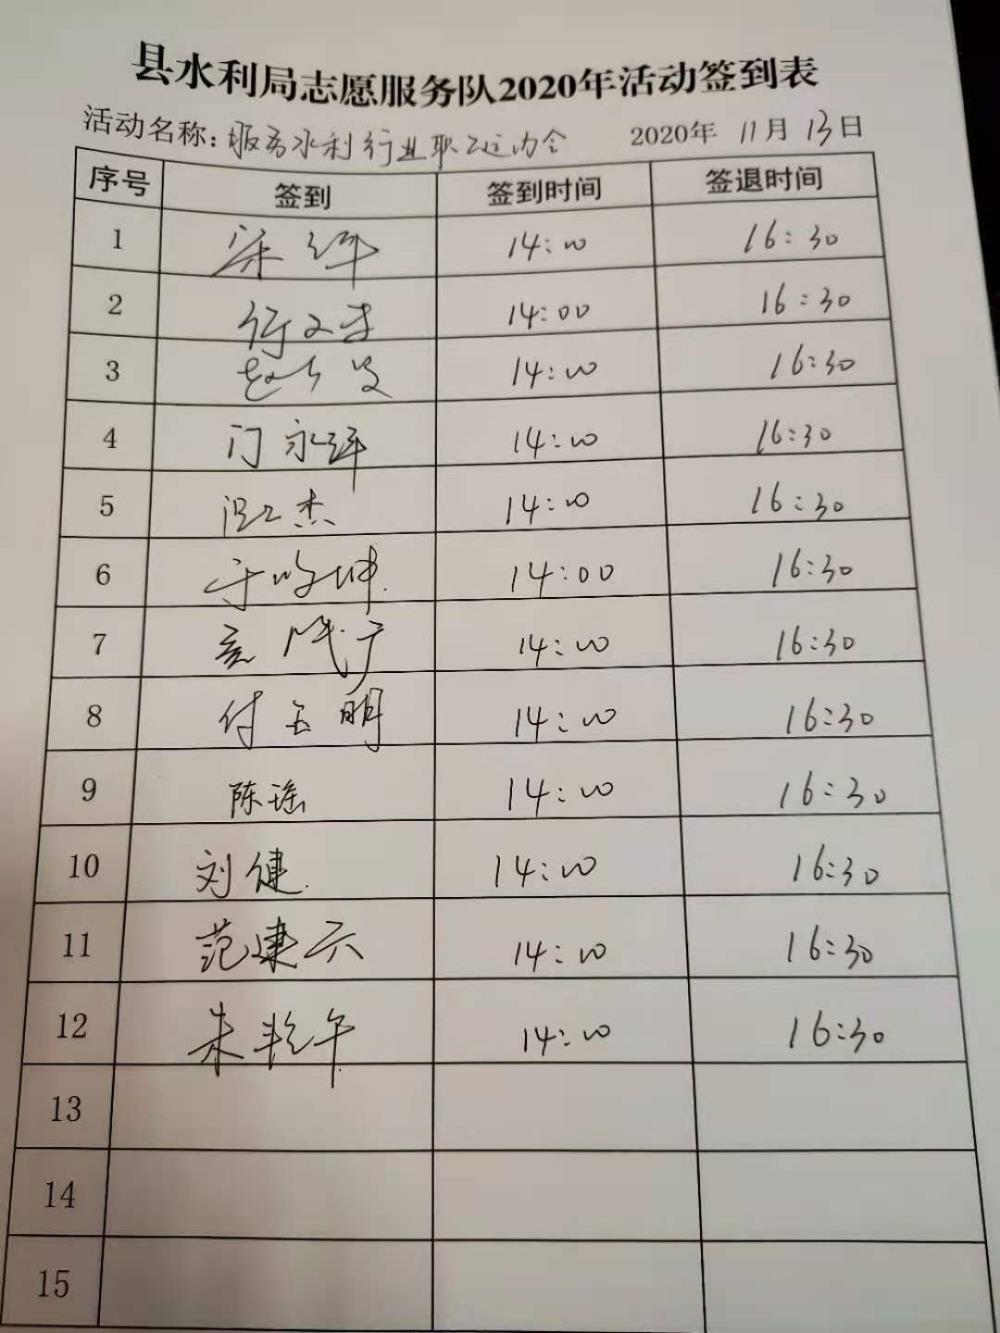 县水利局志愿服务队2020年活动签到表
活动名称：服务水利行业职工运动会 2020年 11月 13日
序号 签到 签到时间 签退时间
1 14:00 16:30
2 14:00 16:30
3 14:00 16:30
4 门永祥 14:00 16:30
5 杰 14:00 16:30
6 于 坤 14:00 16:30
7 14:00 16:30
8 付玉明 14:00 16:30
9 陈瑶 14:00 16:30
10 刘健 14:00 16:30
11 范建云 14:00 16:30
12 朱 午 14:00 16:30
13
14
15